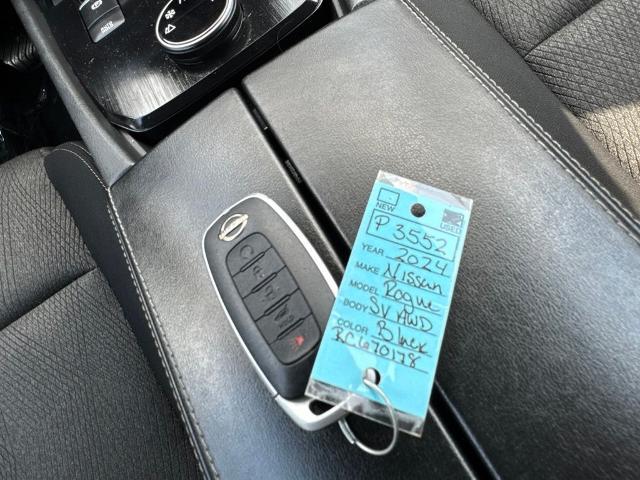 NEW USED
P 3552
YEAR 2024
MAKE Nissan
MODEL Rogue
BODY SV AWD
COLOR Black
RC670178